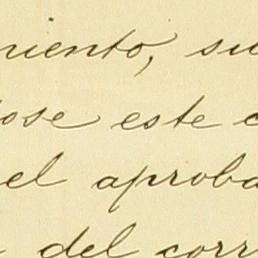 niento, su
ose este c
el aproba
del corr